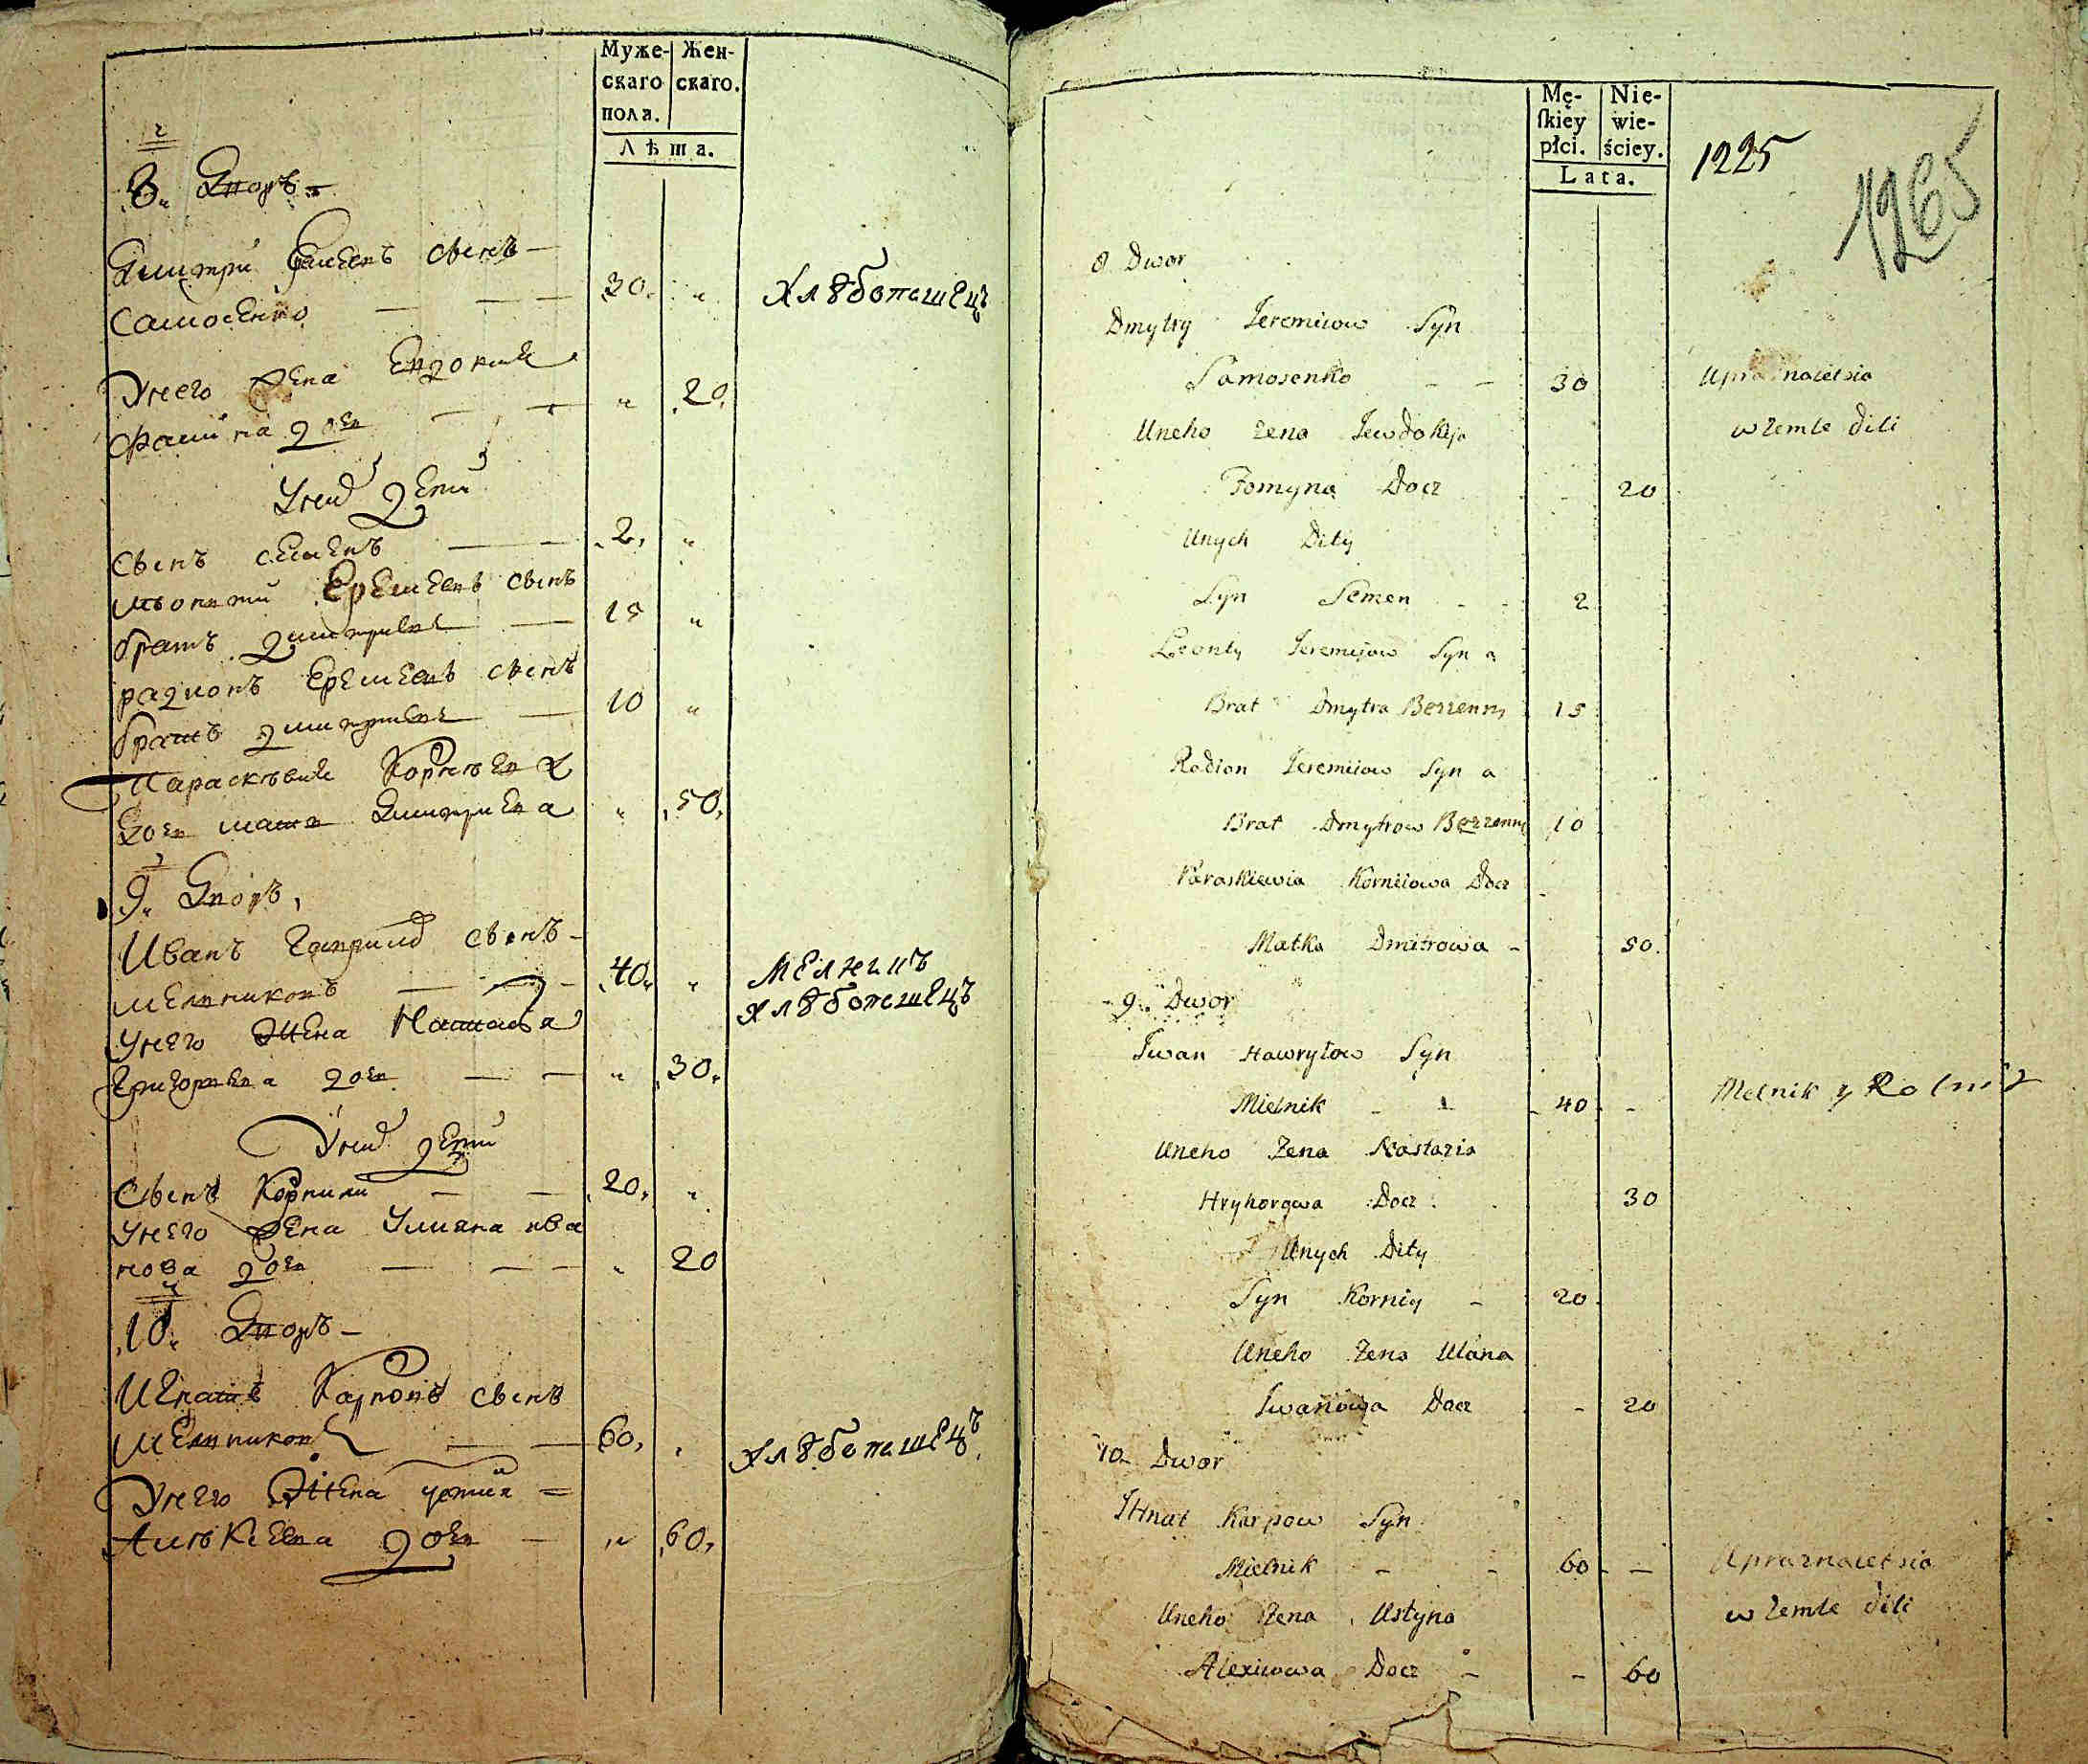 Муже-
скаго
пола.
Жен-
скаго.
Лѣта.
8. Дворъ
Дмитри Еремеевъ сынъ
Самосенко 30
хлѣбопашецъ
У него жена Евдокия
Фомина дочь 20
У них дети
Сынъ Семенъ 2
Леонтий Еремеевъ сынъ
братъ Дмитриевъ 15
радионъ Еремеевъ сынъ
братъ дмитриевъ 10
Парасковия Корнеева
дочь мать Дмитриева 50
9. Дворъ
Иванъ Гаврилов сынъ
мельниковъ 40
мелникъ
хлѣбопашецъ
У него жена Настасья
Григорьева дочь 30
У них дети
Сынъ Корнили 20
У него жена Улияна ива
нова дочь 20
10. Дворъ
Игнатъ Карповъ сынъ
мельников 60
хлѣбопашецъ
У него жена устиня
Алексеевна дочь 60
Mę-
skiey
płci.
Nie-
wie-
ściey.
Lata.
1225
1265
8 Dwor
Dmytry Jeremiiow Syn
Samosenko 30
Upraznaietsia
w zemle dili
Uneho zena Jewdokija
Fomyna Docz 20
Unych Dity
Syn Semen 2
Leonty Jeremijow Syn a
Brat Dmytra Bezzenny 15
Rodion Jeremiiow Syn a
Brat Dmytrow Bezzenny 10
Paraskiewia Korniiowa Docz
Matka Dmitrowa 50
9. Dwor
Jwan Hawryłow Syn
Mielnik 40
Melnik y Rolnik
Uneho Zena Nastazia
Hryhorowa Docz 30
Unych Dity
Syn Korniy 20
Uneho Zena Ulana
Jwanowa Docz 20
10 Dwor
JHnat Karpow Syn
Mielnik 60
Upraznaietsia
w zemle dili
Uneho Zena Ustyna
Alexiiowa Docz 60